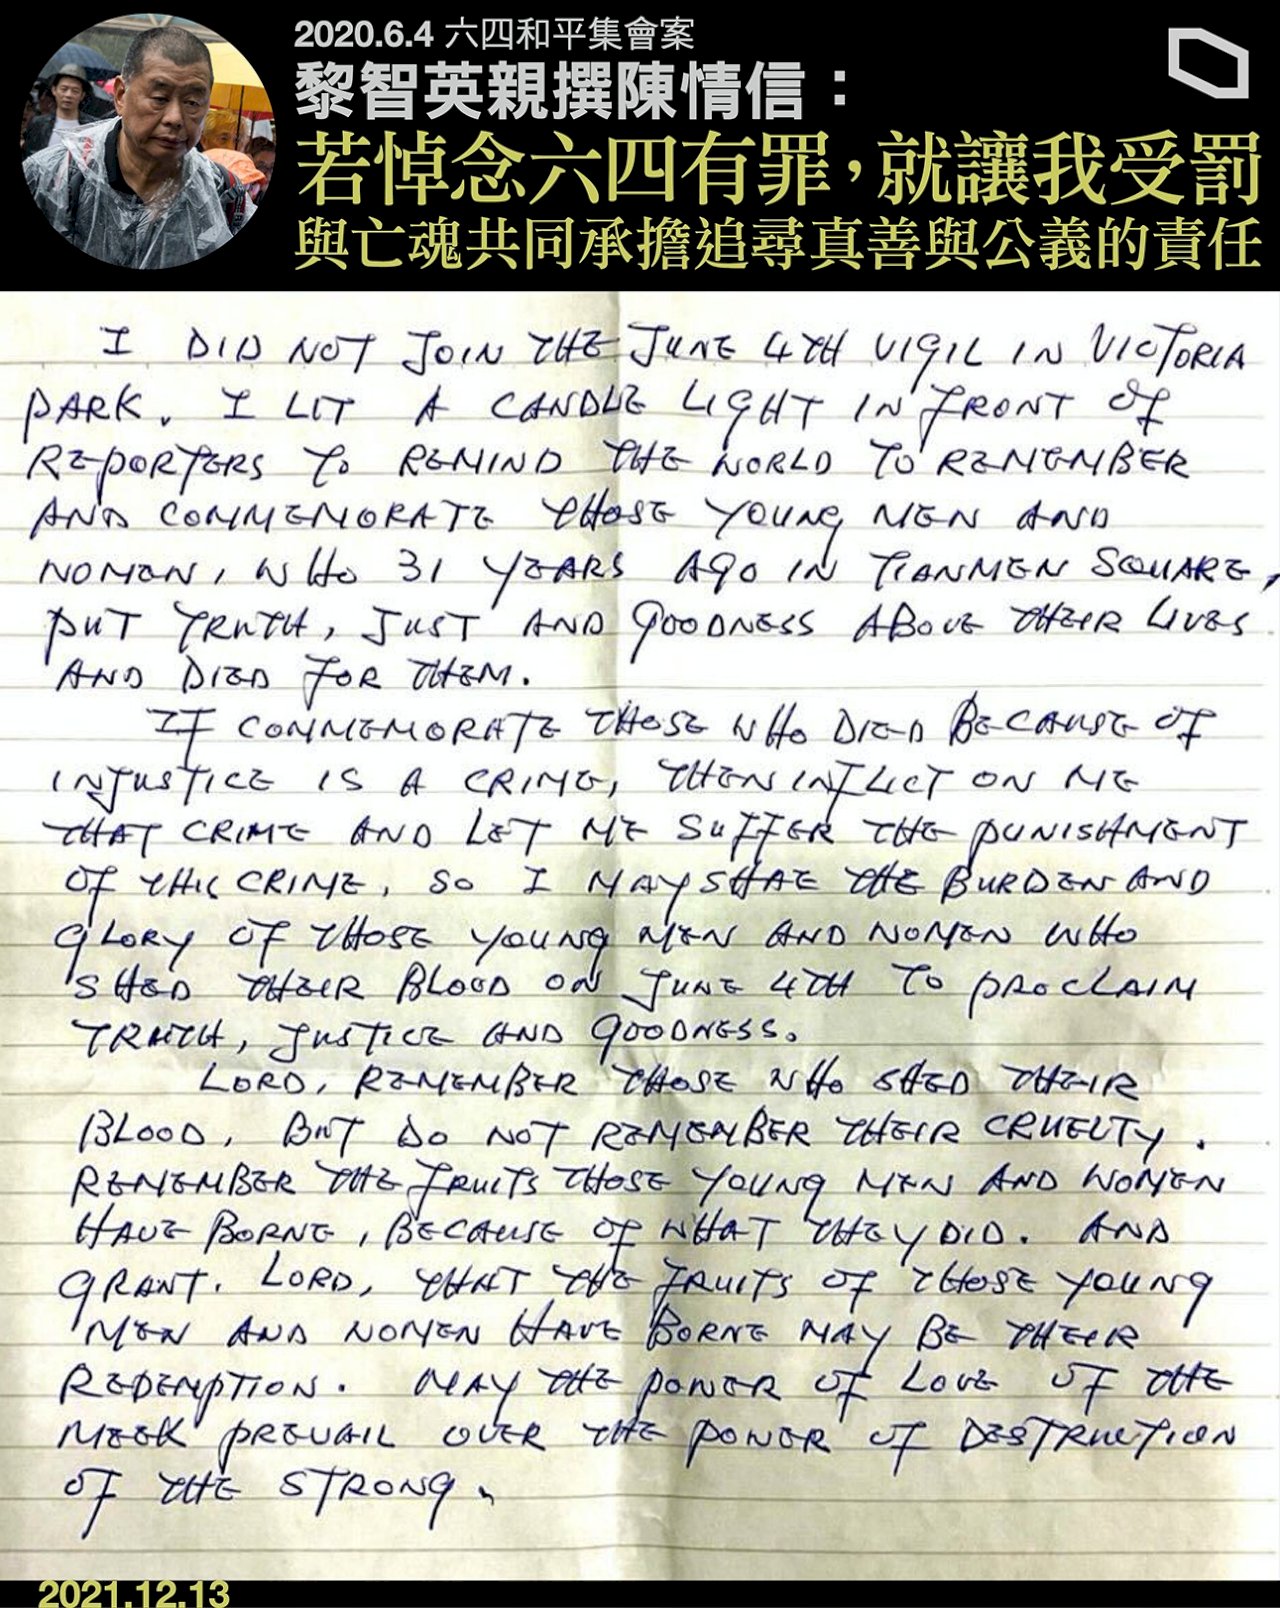 2020.6.4 六四和平集會案
黎智英親撰陳情信：
若悼念六四有罪，就讓我受罰
與亡魂共同承擔追尋真善與公義的責任
I DID NOT JOIN THE JUNE 4TH VIGIL IN VICTORIA
PARK. I LIT A CANDLE LIGHT IN FRONT OF
REPORTERS TO REMIND THE WORLD TO REMEMBER
AND COMMEMORATE THOSE YOUNG MEN AND
WOMEN, WHO 31 YEARS AGO IN TIANMEN SQUARE,
PUT TRUTH, JUST AND GOODNESS ABOVE THEIR LIVES
AND DIED FOR THEM.
IF COMMEMORATE THOSE WHO DIED BECAUSE OF
INJUSTICE IS A CRIME, THEN INFLICT ON ME
THAT CRIME AND LET ME SUFFER THE PUNISHMENT
OF THIS CRIME, SO I MAY SHAE THE BURDEN AND
GLORY OF THOSE YOUNG MEN AND WOMEN WHO
SHED THEIR BLOOD ON JUNE 4TH TO PROCLAIM
TRUTH, JUSTICE AND GOODNESS.
LORD, REMEMBER THOSE WHO SHED THEIR
BLOOD, BUT DO NOT REMEMBER THEIR CRUELTY.
REMEMBER THE FRUITS THOSE YOUNG MEN AND WOMEN
HAVE BORNE, BECAUSE OF WHAT THEY DID. AND
GRANT, LORD, THAT THE FRUITS OF THOSE YOUNG
MEN AND WOMEN HAVE BORNE MAY BE THEIR
REDEMPTION. MAY THE POWER OF LOVE OF THE
MEEK PREVAIL OVER THE POWER OF DESTRUCTION
OF THE STRONG.
2021.12.13